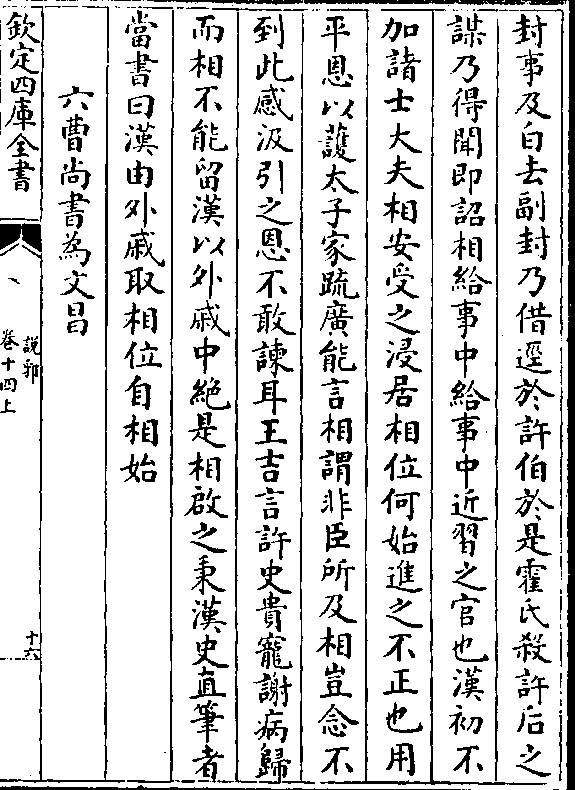 封事及白去副封乃借逕於許伯於是霍氏殺許后之
謀乃得聞即詔相給事中給事中近習之官也漢初不
加諸士大夫相安受之浸居相位何始進之不正也用
平恩以䕶太子家疏廣能言相謂非臣所及相豈念不
到此感汲引之恩不敢諫耳王吉言許史貴寵謝病歸
而相不能留漢以外戚中絶是相啟之秉漢史直筆者
當書曰漢由外戚取相位自相始
六曹尚書為文昌
欽定四庫全書
說郛
卷十四上
十六